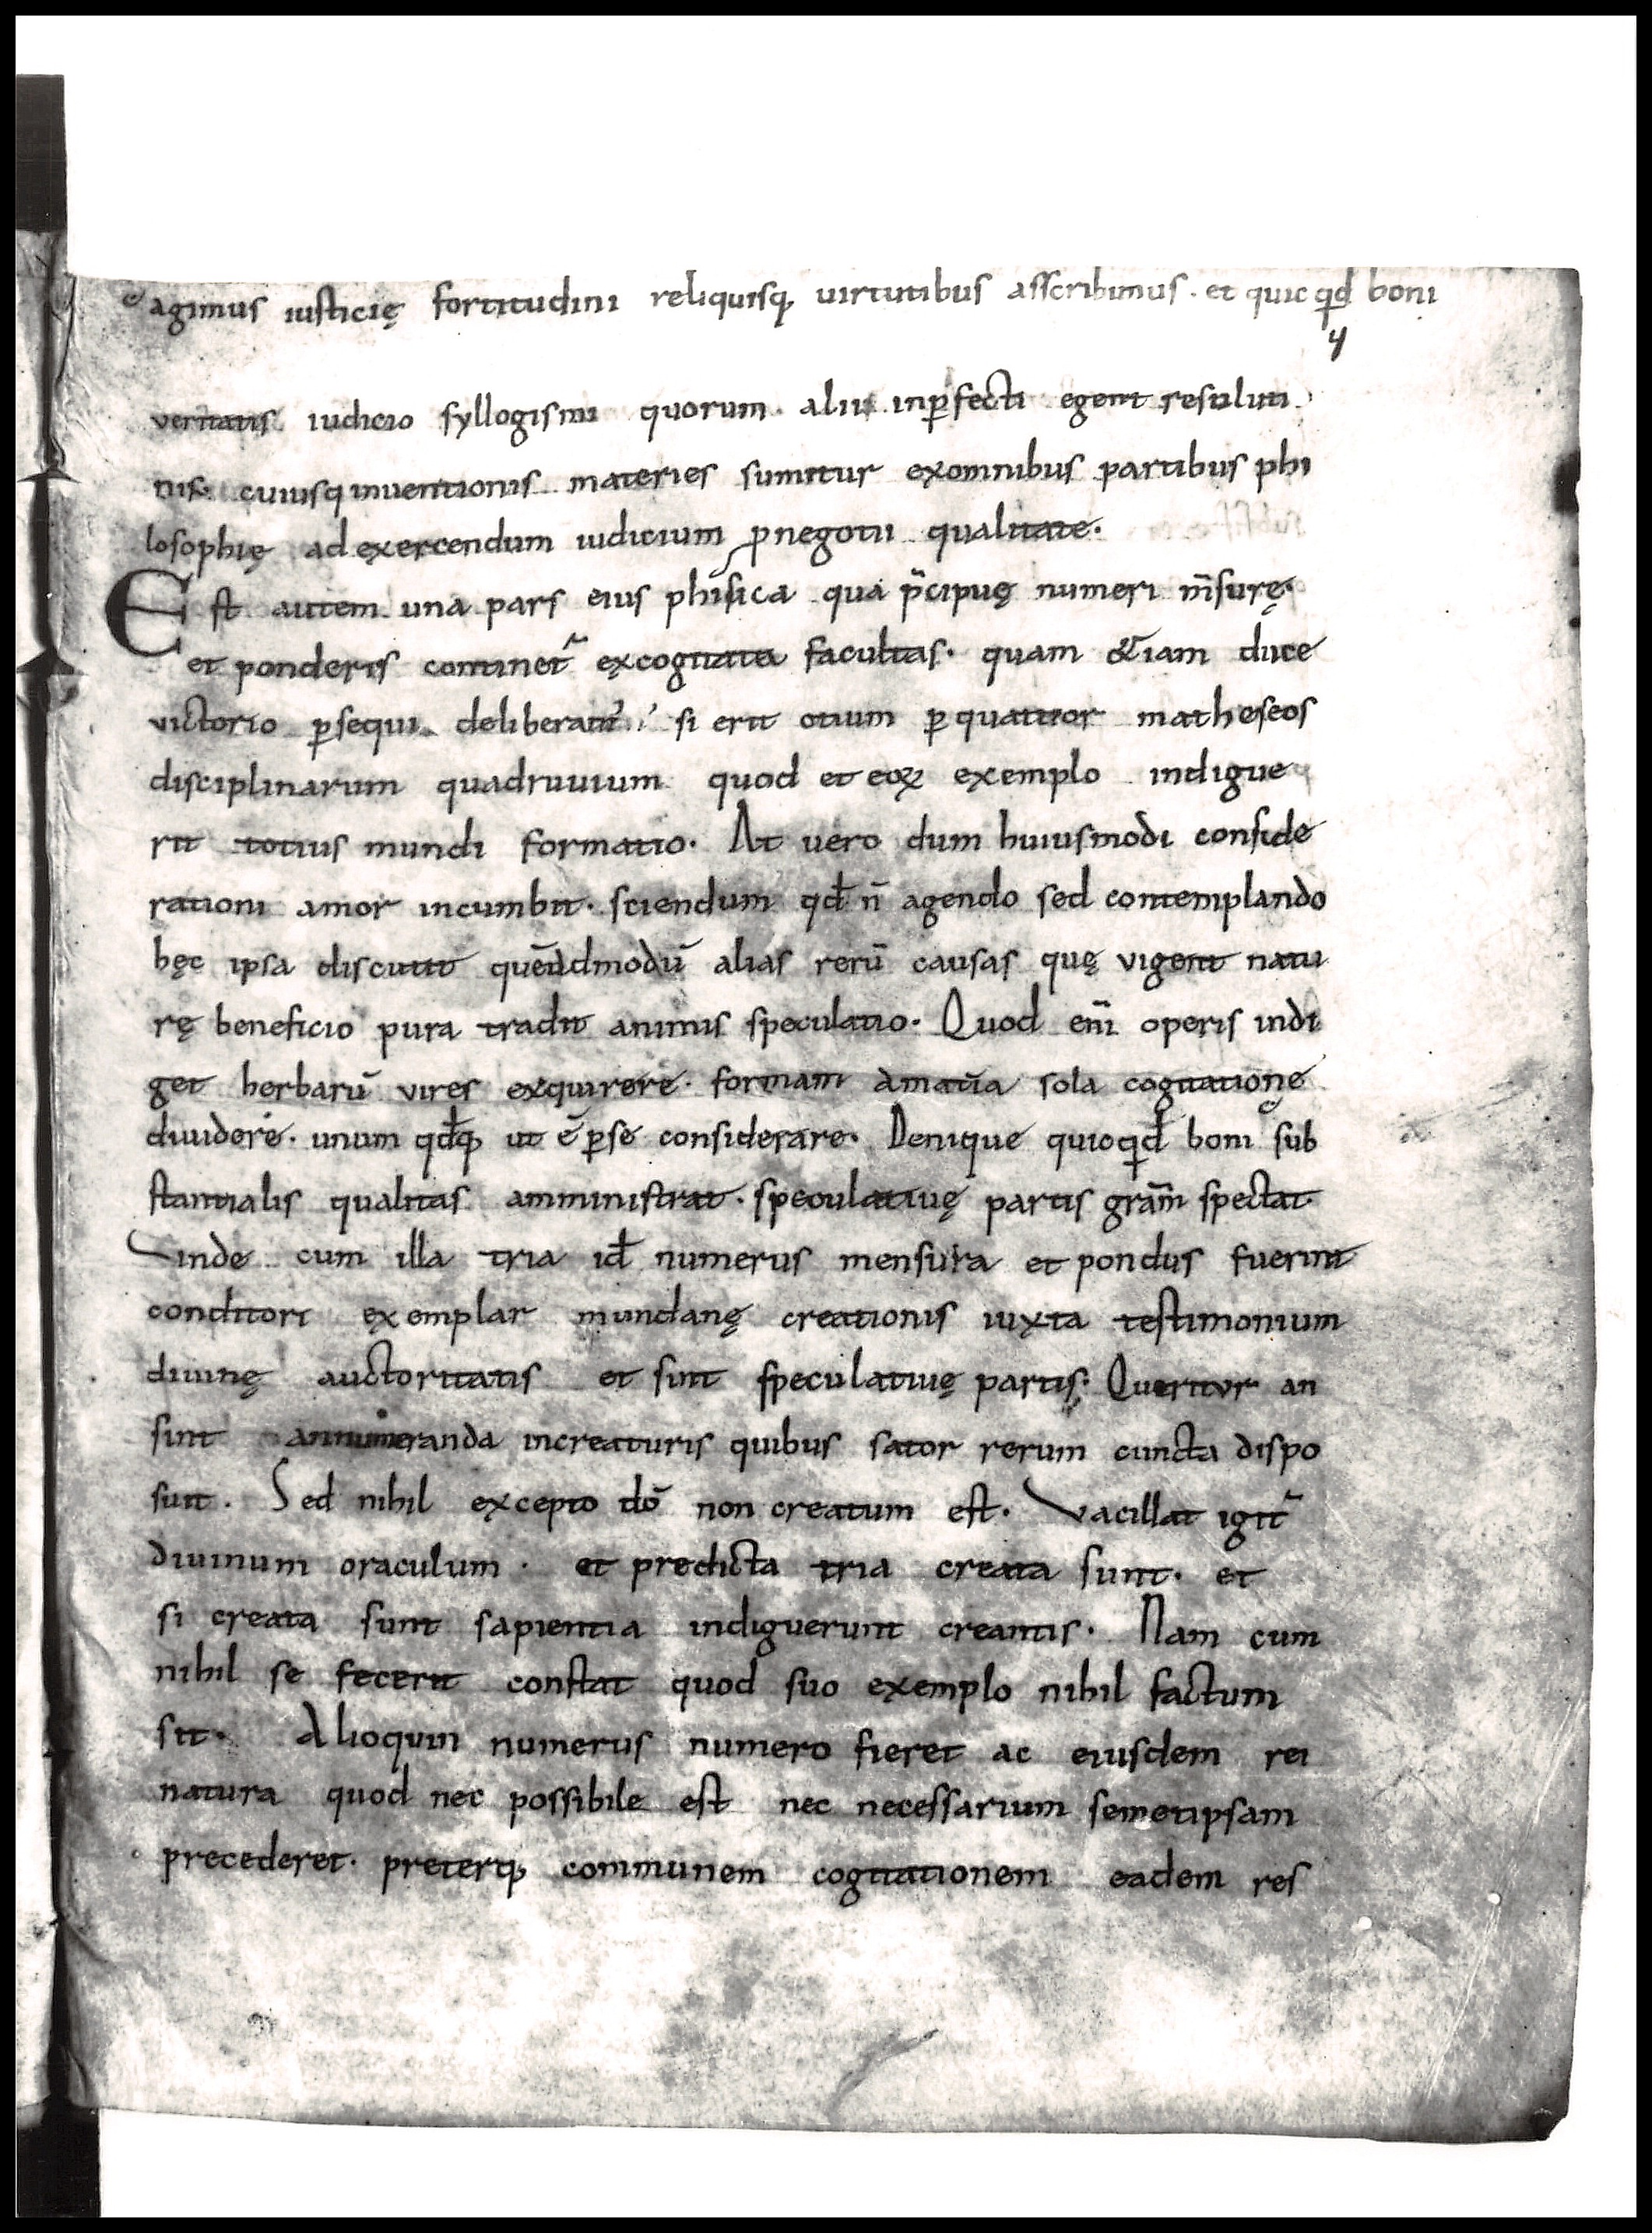 agimus iusticię fortitudini reliquisq; uirtutibus asscribimus · et quicqͥd boni
4
veritatis iudicio syllogismi quorum · alii inꝑfecti egent resoluti
nis · cuiusq inuentionis materies sumitur exomnibus partibus phi
losophię ad exercendum iudicium ꝓ negotii qualitate ·
Est autem una pars eius phisica qua p̄cipuę numeri m̄surę ·
et ponderis continet᷑ excogitata facultas · quam &iam duce
victorio ꝑsequi deliberam᷒ si erit otium ꝑ quattuor matheseos
disciplinarum quadruuium quod et eoꝝ exemplo indigue
rit totius mundi formatio · At uero dum huiusmodi conside
rationi amor incumbit · sciendum qđ n̄ agendo sed contemplando
hęc ipsa discutit quēadmodū alias rerū causas quę vigent natu
rę beneficio pura tradit animis speculatio · Quod eni̅ operis indi
get herbarū vires exquirere · formam a materia sola cogitatione
diuidere · unum qđq; ut ē ꝑse considerare · Denique quicqͥd boni sub
stantialis qualitas amministrat · speculatiuę partis gram̅ spectat
Vnde cum illa tria id̄ numerus mensura et pondus fuerint
conditori exemplar mundanę creationis iuxta testimonium
diuinę auctoritatis et sint speculatiuę partis · Queritur an
sint annumeranda increaturis quibus sator rerum cuncta dispo
suit · Sed nihil excepto dō non creatum est · Vacillat igit᷑
diuinum oraculum · et predicta tria creata sunt · et
si creata sunt sapientia indiguerunt creantis · Nam cum
nihil se fecerit constat quod suo exemplo nihil factum
sit · Alioquin numerus numero fieret ac eiusdem rei
natura quod nec possibile est nec necessarium semetipsam
precederet · preterq; communem cogitationem eadem res